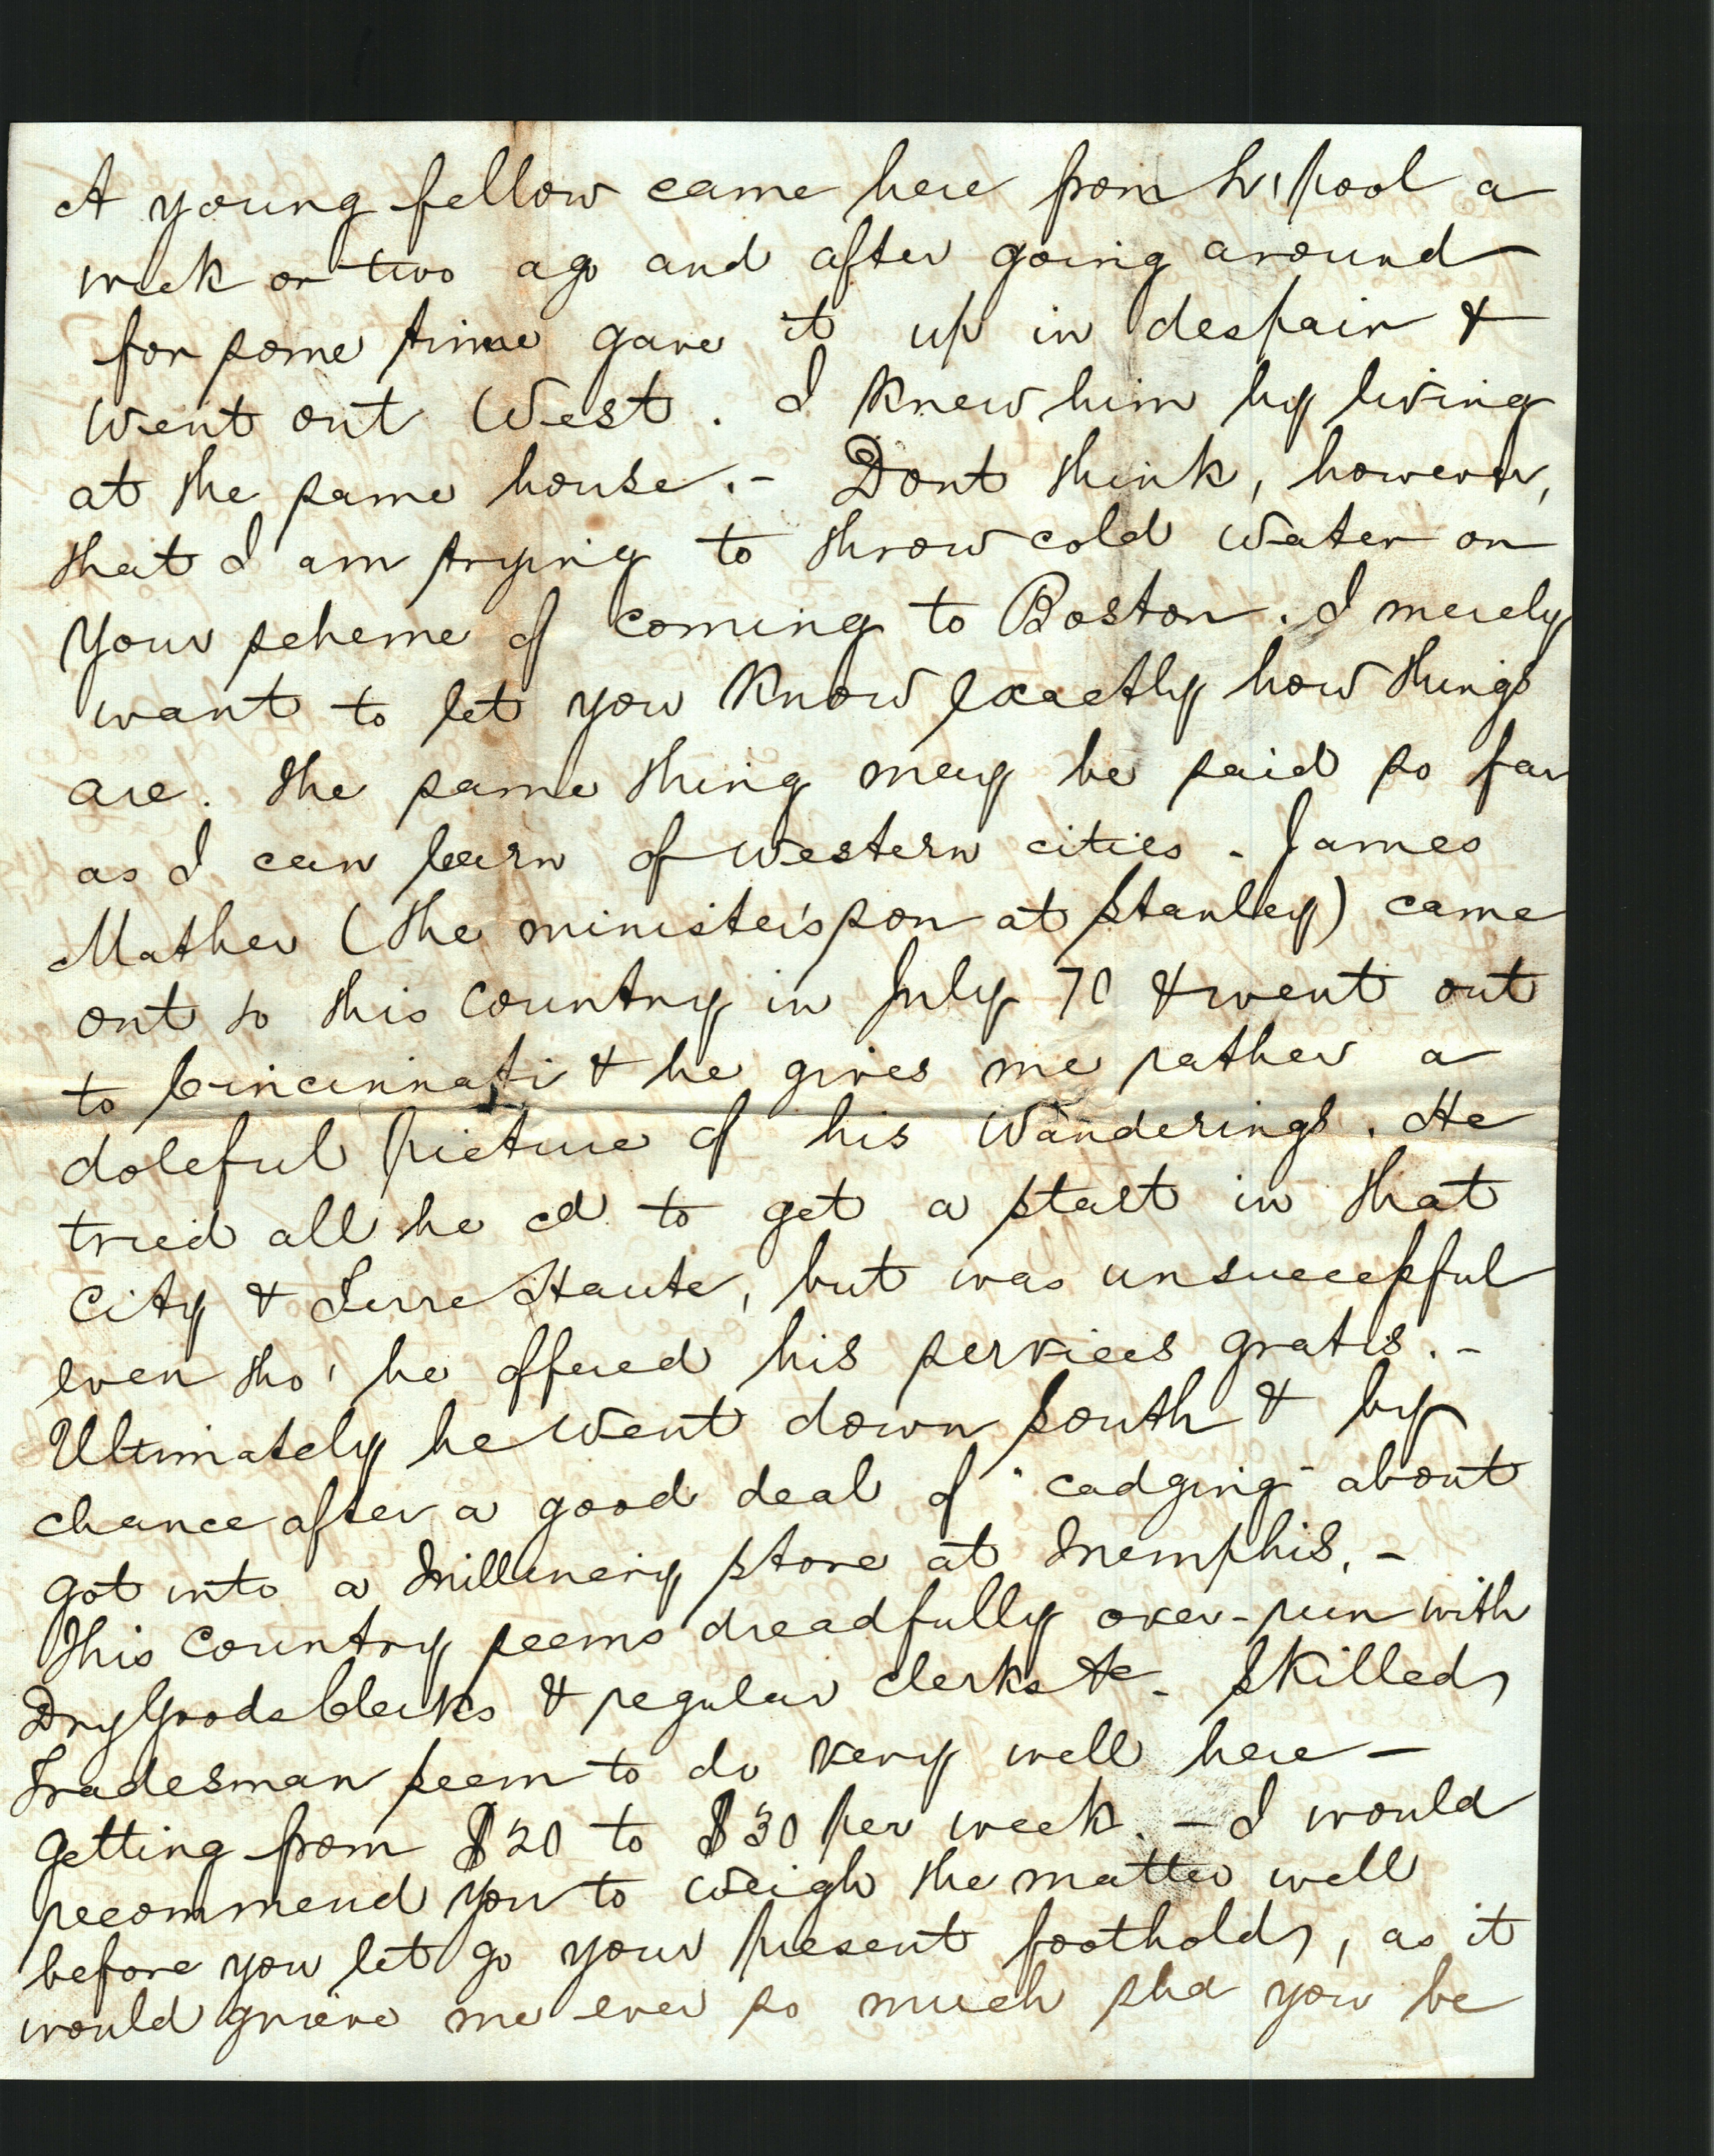 A young fellow came here from L'pool a
week or two ago and after going around
for some time gave it up in despair &
went out West. I knew him by living
at the same house.- Dont think, however,
that I am trying to throw cold water on
your scheme of coming to Boston. I merely
want to let you know exactly how things
are. The same thing may be said so far
as I can learn of western cities - James
Mather (the minister's son at Stanley) came
out to this country in July 70 & went out
to Cincinnati & he gives me rather a
doleful picture of his wanderings. He
tried all he cd to get a start in that
city & Terre Haute, but was unsuccessful
even tho' he offered his services gratis.-
Ultimately he went down South & by
chance after a good deal of "cadging" about
got into a Millinery store at Memphis.-
This country seems dreadfully over-run with
Dry Goods Clerks & regular clerks &c - Skilled
Tradesman seem to do very well here -
getting from $20 to $30 per week. - I would
recommend you to weigh the matter well
before you let go your present foothold, as it
would grieve me ever so much shd you be